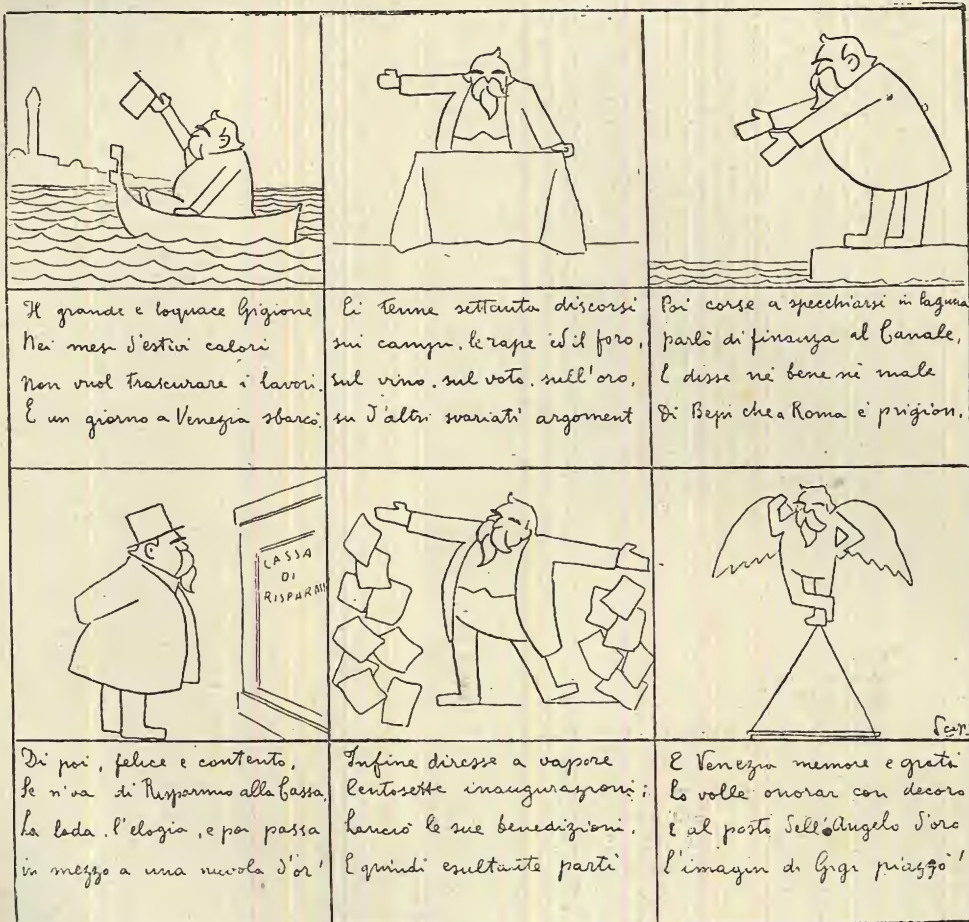 Il grande e loquace Gigione
Nei mesi d'estivi calori
Non vuol trascurare i lavori.
E un giorno a Venezia sbarcò.
Ei tenne settanta discorsi
sui campi, le rape ed il foro,
sul vino, sul voto, sull'oro,
su d'altri svariati argoment
Poi corse a specchiarsi in laguna
parlò di finanza al Canale,
E disse nè bene nè male
Di Bepi che a Roma è prigion.
CASSA
DI
RISPARMI
Scarp
Di poi, felice e contento,
Se n'va di Risparmio alla Cassa,
La loda, l'elogia, e poi passa
in mezzo a una nuvola d'or!
Infine diresse a vapore
Centosette inaugurazioni;
Lanciò le sue benedizioni,
E quindi esultante partì
E Venezia memore e grata
Lo volle onorar con decoro
E al posto dell'Angelo d'oro
L'imagin di Gigi piazzò!